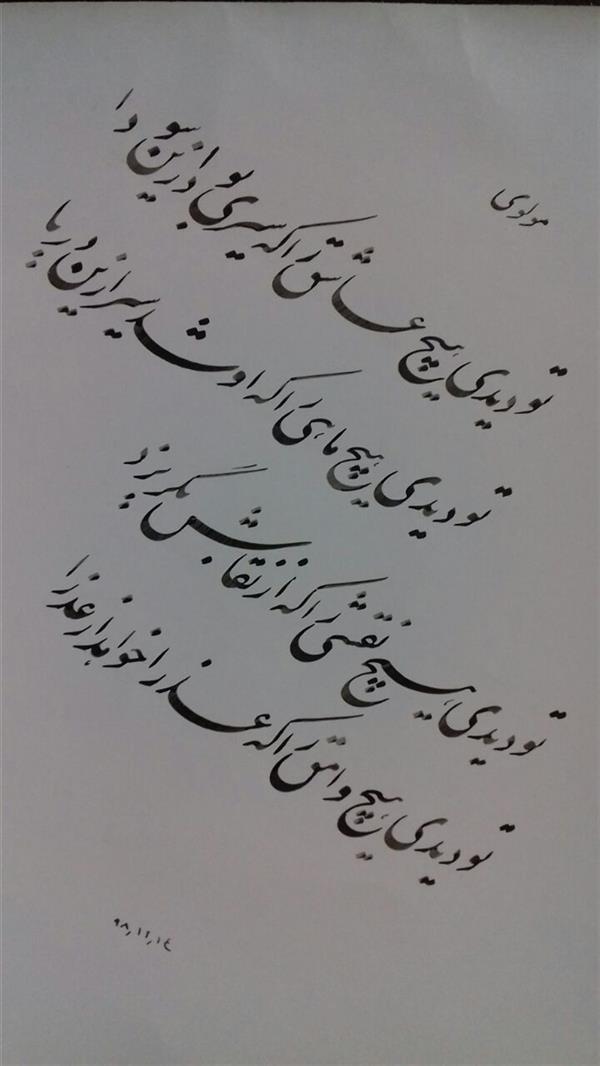 مولوی
تو دیدی هیچ عاشق را که سیری بود ازین سودا
تو دیدی هیچ ماهی را که او شد سیر ازین دریا
تو دیدی هیچ نقشی را که از نقاش بگریزد
تو دیدی هیچ وامق را که عذرا خواهد از عذرا
۹۸٫۱۲٫۱۴